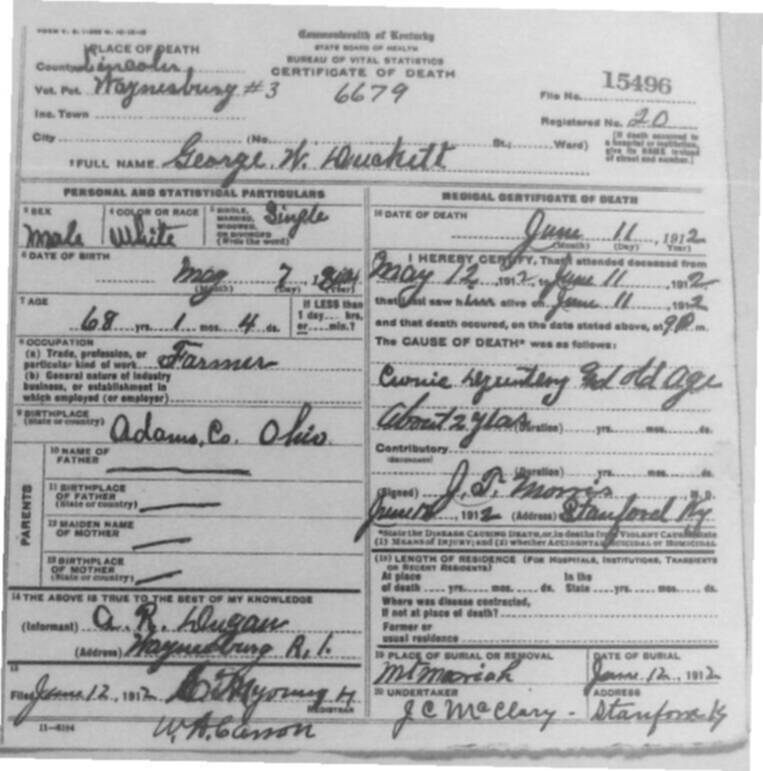 Commonwealth of Kentucky
STATE BOARD OF HEALTH
BUREAU OF VITAL STATISTICS
CERTIFICATE OF DEATH
PLACE OF DEATH
County Lincoln
Vot. Pct. Waynesburg #3
6679
File No. 15496
Inc. Town
Registered No. 20
City (No. St.; Ward)
(If death occurred in a hospital or institution, give its NAME instead of street and number.)
2 FULL NAME George W. Duckett
PERSONAL AND STATISTICAL PARTICULARS
3 SEX
Male
4 COLOR OR RACE
White
5 SINGLE, MARRIED, WIDOWED, OR DIVORCED (Write the word)
Single
6 DATE OF BIRTH
May 7, 1
(Month) (Day) (Year)
7 AGE
68 yrs. 1 mos. 4 ds.
If LESS than 1 day.... hrs. or.... min.?
8 OCCUPATION
(a) Trade, profession, or particular kind of work Farmer
(b) General nature of industry business, or establishment in which employed (or employer)
9 BIRTHPLACE
(State or country)
Adams, Co. Ohio.
PARENTS
10 NAME OF FATHER
11 BIRTHPLACE OF FATHER
(State or country)
12 MAIDEN NAME OF MOTHER
13 BIRTHPLACE OF MOTHER
(State or country)
14 THE ABOVE IS TRUE TO THE BEST OF MY KNOWLEDGE
(Informant) A. R. Dugan
(Address) Waynesburg R. 1.
15
Filed June 12, 1912
REGISTRAR
11-6194
MEDICAL CERTIFICATE OF DEATH
16 DATE OF DEATH
June 11, 1912
(Month) (Day) (Year)
I HEREBY CERTIFY, That I attended deceased from
May 12 1912, to June 11, 1912
that I last saw him alive on June 11, 1912
and that death occured, on the date stated above, at 9 P m.
The CAUSE OF DEATH* was as follows:
old Age
About 2 years (Duration) yrs. mos. ds.
Contributory
(SECONDARY)
(Duration) yrs. mos. ds.
(Signed) J. T. Morris M. D.
June, 1912 (Address) Stanford Ky
*State the DISEASE CAUSING DEATH, or, in deaths from VIOLENT CAUSES, state (1) MEANS OF INJURY; and (2) whether ACCIDENTAL, SUICIDAL or HOMICIDAL.
(18) LENGTH OF RESIDENCE (FOR HOSPITALS, INSTITUTIONS, TRANSIENTS OR RECENT RESIDENTS)
At place of death yrs. mos. ds. In the State yrs. mos. ds.
Where was disease contracted, if not at place of death?
Former or usual residence
19 PLACE OF BURIAL OR REMOVAL
Mt Moriah
DATE OF BURIAL
June 12, 1912
20 UNDERTAKER
J C McClary -
ADDRESS
Stanford Ky